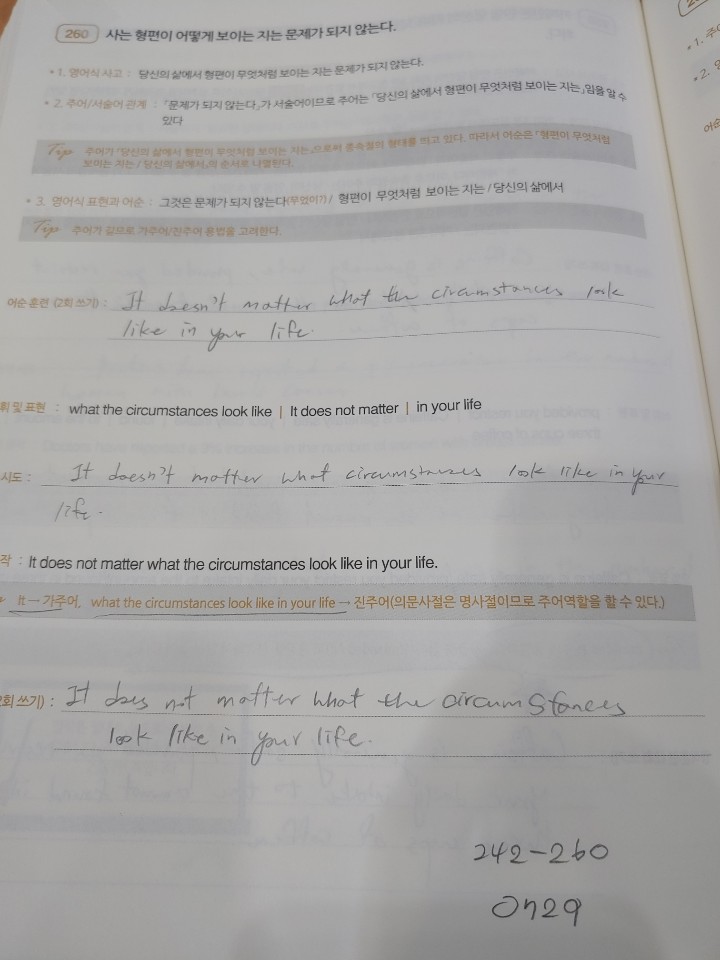 260 사는 형편이 어떻게 보이는 지는 문제가 되지 않는다.
* 1. 영어식 사고 : 당신의 삶에서 형편이 무엇처럼 보이는 지는 문제가 되지 않는다.
* 2. 주어/서술어 관계 : 「문제가 되지 않는다」가 서술어이므로 주어는 「당신의 삶에서 형편이 무엇처럼 보이는 지는」임을 알 수
있다
Tip 주어가 「당신의 삶에서 형편이 무엇처럼 보이는 지는」으로써 종속절의 형태를 띄고 있다. 따라서 어순은 「형편이 무엇처럼
보이는 지는 / 당신의 삶에서」의 순서로 나열된다.
* 3. 영어식 표현과 어순 : 그것은 문제가 되지 않는다(무엇이?) / 형편이 무엇처럼 보이는 지는 / 당신의 삶에서
Tip 주어가 길므로 가주어/진주어 용법을 고려한다.
어순 훈련 (2회 쓰기) : It doesn't matter what the circumstances look
like in your life.
휘 및 표현 : what the circumstances look like | It does not matter | in your life
시도 : It doesn't matter what circumstances look like in your
life.
작 : It does not matter what the circumstances look like in your life.
It → 가주어, what the circumstances look like in your life → 진주어(의문사절은 명사절이므로 주어역할을 할 수 있다.)
회 쓰기) : It does not matter what the circumstances
look like in your life.
242-260
0729